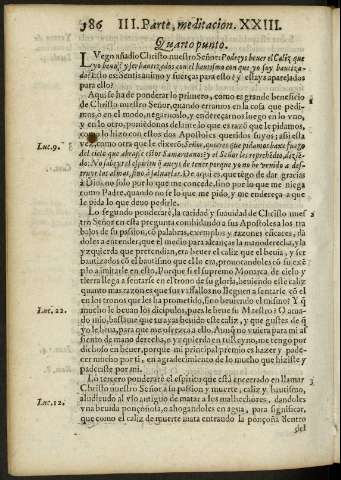 186 III. Parte, meditacion. XXIII.
Quarto punto.
LVego añadio Christo nuestro Señor: Podeys beuer el Caliz que
yo beuo? y ser bautizados con el bautismo con que yo soy bautiza-
do? Esto es: Sentis animo y fuerças para esto? y estays aparejados
para ello?
Aqui se ha de ponderar lo primero, como es grande beneficio
de Christo nuestro Señor, quando erramos en la cosa que pedi-
mos, ò en el modo, negarnoslo, y endereçarnos luego en lo vno,
y en lo otro, poniendonos delante lo que es razõ que le pidamos,
como lo hizo con estos dos Apostoles queridos suyos; assi esta
Luc. 9. vez, como otra que le dixerõ: Señor, quieres que pidamos baxe fuego
del cielo que abrase estos Samaritanos? y el Señor los reprehẽdio, dizië-
do: No sabeys el espiritu q̃ aueys de tener porque yo no he venido a des-
truyr las almas, sino à saluarlas. De aqui es, que tẽgo de dar gracias
à Dios, no solo por lo que me concede, sino por lo que me niega
como Padre, quando no se lo que me pido, y me endereça a que
le pida lo que deuo pedirle.
Lo segundo ponderarè, la caridad y suauidad de Christo nues 2
tro Señor en esta pregunta combidando a sus Apostoles a los tra
bajos de su passion, cõ palabras, exemplos y razones eficaces, dã
doles a entender, que el medio para alcançar la mano derecha, y la
yzquierda que pretendian, era beuer el caliz que el beuia, y ser
bautizados cõ el bautismo que el lo era, prouocandoles cõ su exẽ
plo a imitarle en esto. Porque si el supremo Monarca de cielo y
tierra llega a sentarse en el trono de su gloria, beuiendo este caliz
quanto mas razon es que sus vassallos no lleguen a sentarse cõ el
en los tronos que les ha prometido, sino beuiendo el mismo? Y q̃
Luc. 22. mucho le beuan los dicipulos, pues le beue su Maestro? O ama-
do mio, bastame que tu ayas beuido este caliz, y que gustes de q̃
yo le beua, para que me ofrezca a ello. Aunq̃ no viera para mi as
siento de mano derecha, o yzquierda en tu Reyno, me tengo por
dichoso en beuer, porque mi principal premio es hazer y pade-
cer mucho por ti, en agradecimiento de lo mucho que hiziste y
padeciste por mi.
Lo tercero ponderarè el espiritu que està encerrado en llamar 3
Christo nuestro Señor a su passion y muerte, caliz y bautismo,
Luc. 12. aludiendo al vso antiguo de matar a los malhechores, dandoles
vna beuida ponçoñosa, o ahogandoles en agua, para significar,
que como el caliz de muerte mata entrando la ponçoña dentro
del